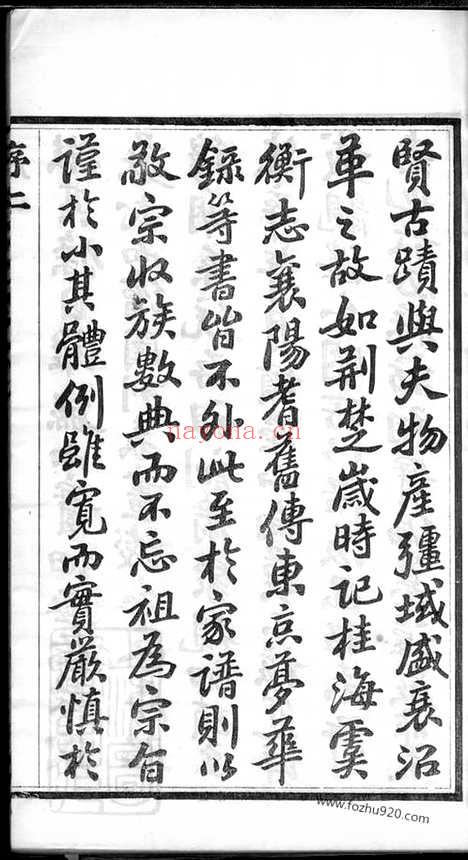 賢古蹟與夫物產疆域盛衰沿
革之故如荆楚歲時記桂海虞
衡志襄陽耆舊傳東京夢華
錄等書皆不外此至於家譜則以
敬宗收族數典而不忘祖為宗旨
謹於小其體例雖寬而實嚴慎於
序二
nayona.cn
www.fozhu920.com